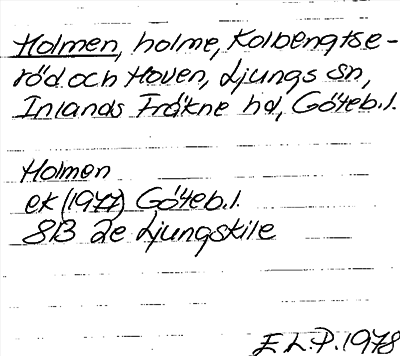 Holmen, holme, Kolbengtse-
röd och Hoven, Ljungs sn,
Inlands Fräkne hd, Göteb.l.
Holmen
ek (1977) Göteb.l.
8B 2e Ljungskile
E L.P. 1978